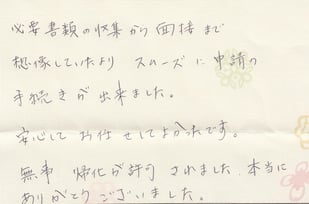 必要書類の収集から面接まで
想像していたより スムーズに申請の
手続きが出来ました。
安心して お任せしてよかったです。
無事 帰化が許可されました。本当に
ありがとうございました。